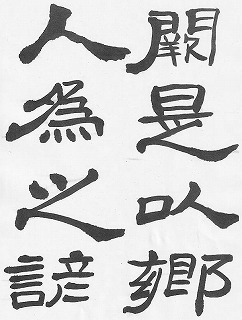 闕是以鄉
人為之諺